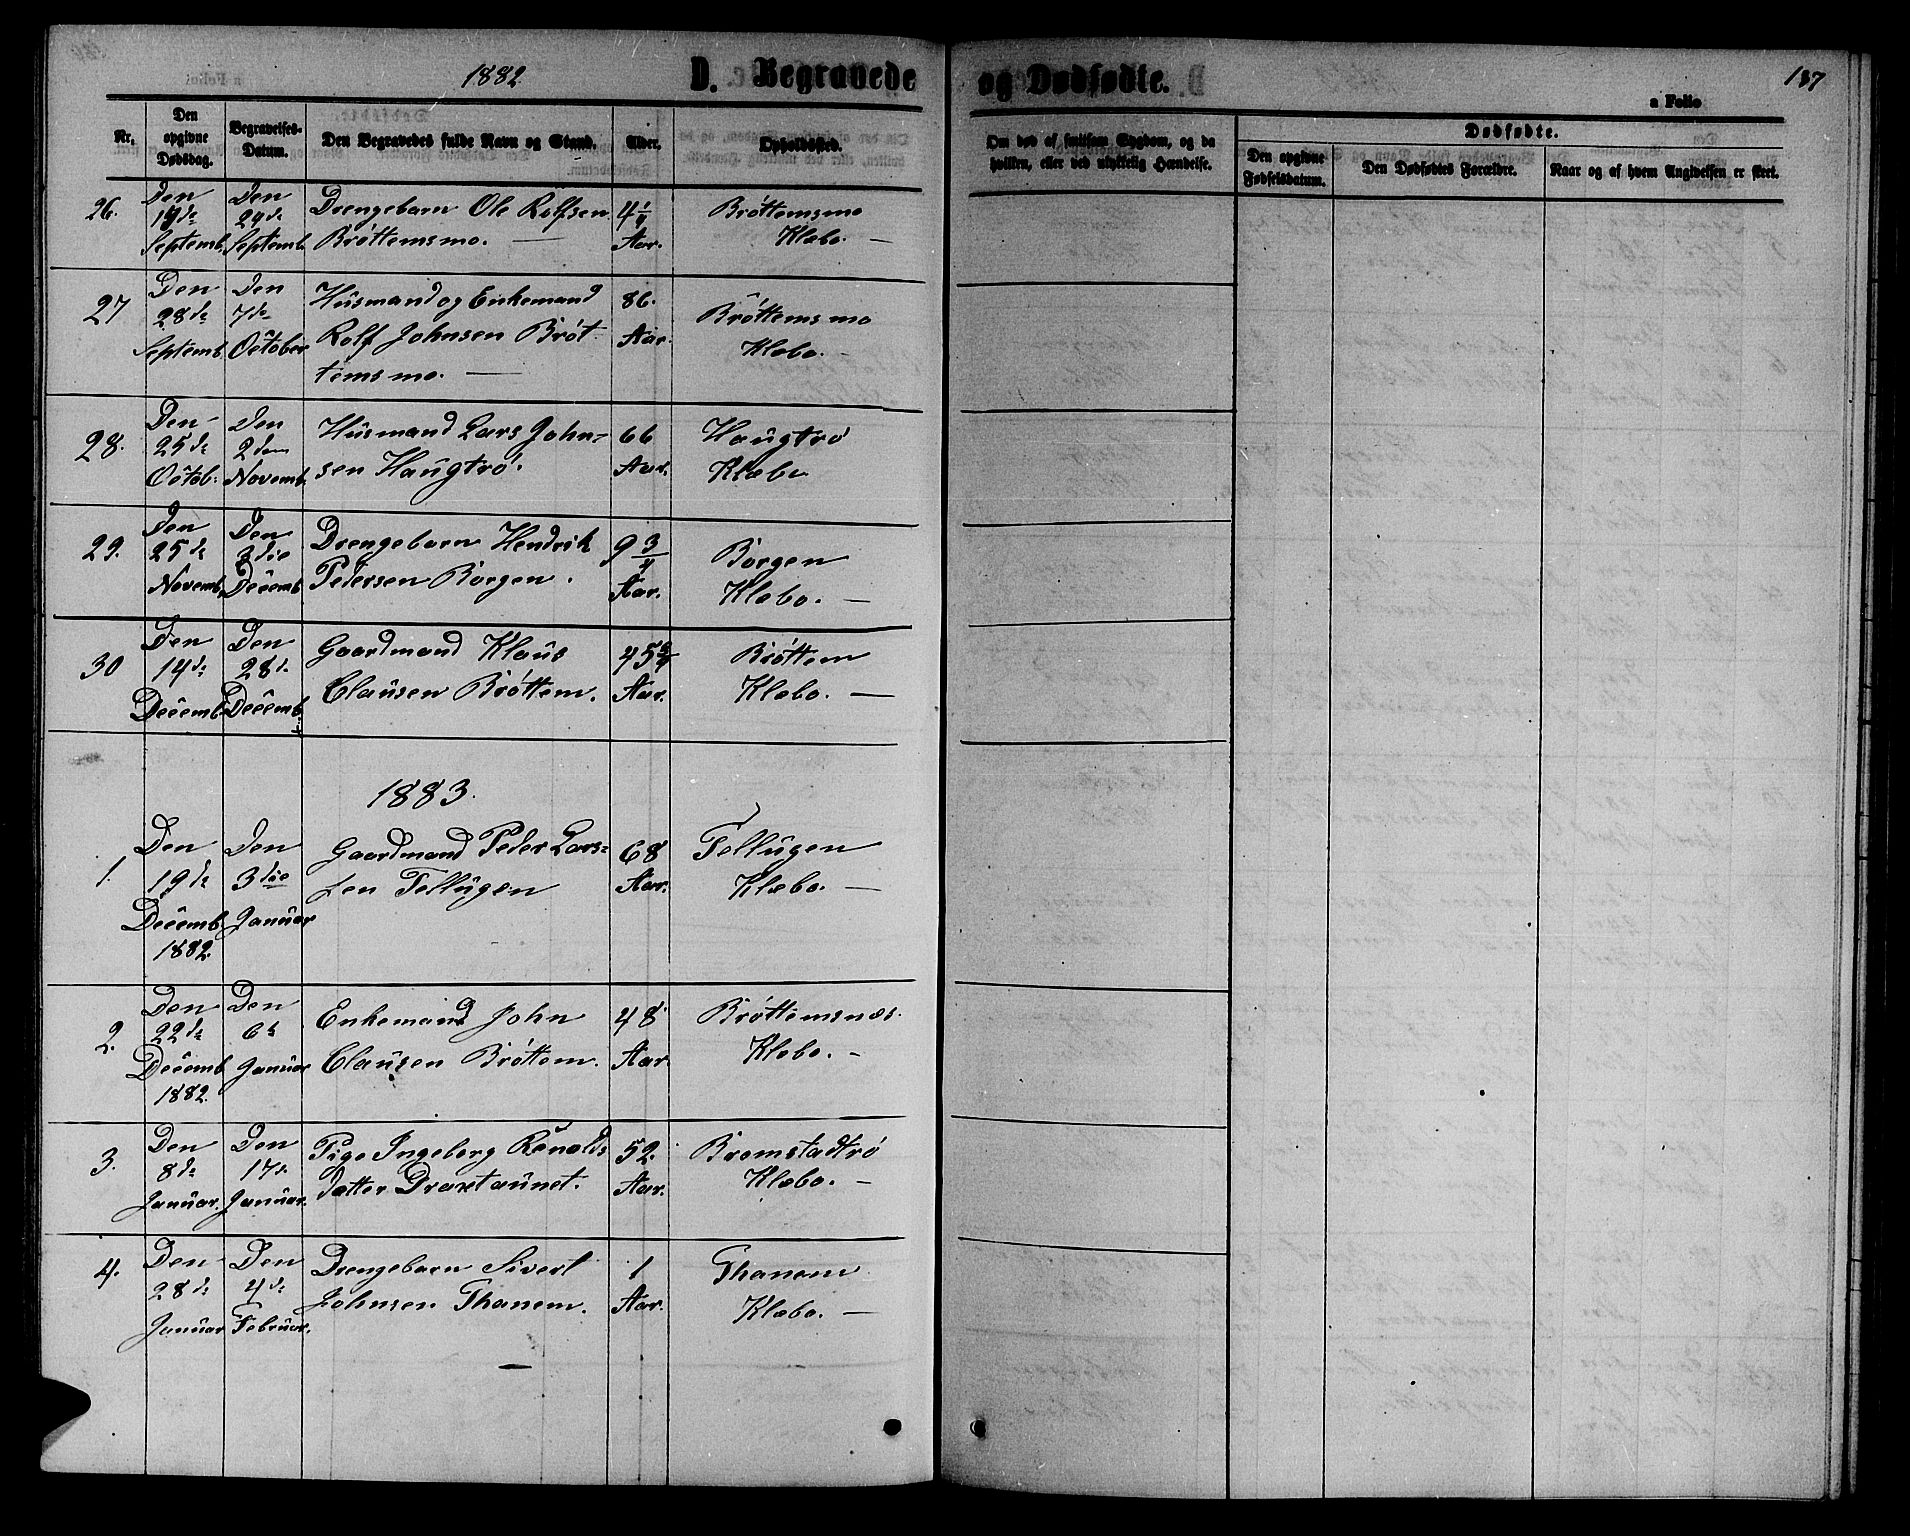 1882
D. Begravede og Dødfødte.
a Folio
137
Nr.
Den opgivne Dødsdag.
Begravelses-Datum.
Den Begravedes fulde Navn og Stand.
Alder.
Opholdssted.
Om død af smitsom Sygdom, og da hvilken, eller ved ulykkelig Hændelse.
Dødfødte.
Den opgivne Fødselsdatum.
Den Dødfødtes Forældre.
Naar og af hvem Angivelsen er skeet.
26. Den Den Drengebarn Ole Rolfsen 4 1/4 Bröttemsmo
de 24de Bröttemsmo. — Aar. Klæbo. —
Septemb. Septemb.
27 Den Den Husmand og Enkemand 86. Bröttemsmo
28de 7de Rolf Johnsen Bröt- Aar. Klæbo. —
Septemb. October temsmo. —
28. Den Den Husmand Lars John- 66 Haugtrö
25de 2den sen Haugtrö. Aar. Klæbo
Octob. Novemb.
29. Den Den Drengebarn Hendrik 9 3/4 Borgen
25de 3die Pedersen Borgen. Aar. Klæbo. —
Novemb. Decemb.
30 Den Den Gaardmand Klaus 45 3/4 Bröttem
14de 28de Clausen Bröttem. Aar. Klæbo. —
Decemb. Decemb.
1883.
1. Den Den Gaardmand Peder Lars- 68 Tellugen
19de 3die sen Tellugen Aar. Klæbo. —
Decemb. Januar
1882.
2. Den Den Enkemand John 48 Bröttemsnæs.
22de 6te Clausen Bröttem. Aar. Klæbo. -
Decemb. Januar
1882.
3. Den Den Pige Ingeborg Rönalds 52. Bromstadtrö
8de 17de datter Draxtaunet. Aar. Klæbo. -
Januar. Januar.
4. Den Den Drengebarn Sivert 1 Thanem
28de 4de Johnsen Thanem. Aar. Klæbo. —
Januar Februar.